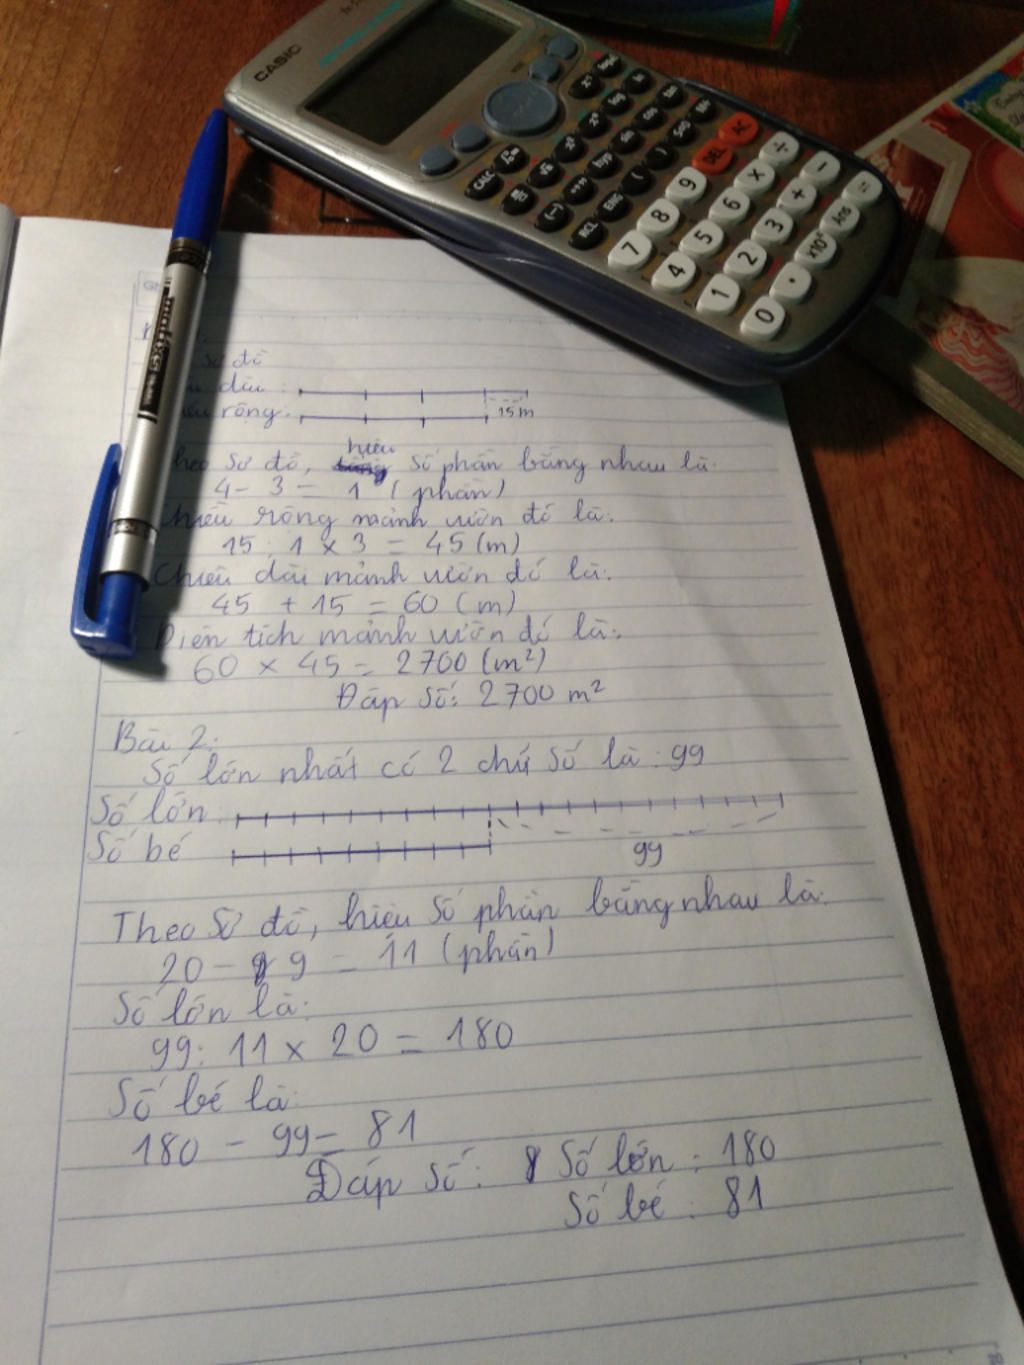 CASIO
CALC
RCL
ENG
hyp
sin
cos
tan
log
ln
(
)
DEL
AC
7
8
9
4
5
6
×
÷
1
2
3
+
−
0
.
×10ˣ
Ans
=
sơ đồ
dài :
rộng :
15m
hiệu
Theo sơ đồ, số phần bằng nhau là:
4 - 3 = 1 (phần)
Chiều rộng mảnh vườn đó là:
15 : 1 × 3 = 45 (m)
Chiều dài mảnh vườn đó là:
45 + 15 = 60 (m)
Diện tích mảnh vườn đó là:
60 × 45 = 2700 (m²)
Đáp số: 2700 m²
Bài 2:
Số lớn nhất có 2 chữ số là : 99
Số lớn :
Số bé
99
Theo sơ đồ, hiệu số phần bằng nhau là:
20 - 9 = 11 (phần)
Số lớn là:
99 : 11 × 20 = 180
Số bé là:
180 - 99 = 81
Đáp số : Số lớn : 180
Số bé : 81